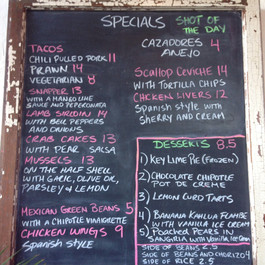 SPECIALS
TACOS
CHILI PULLED PORK 11
PRAWN 14
VEGETARIAN 8
SNAPPER 13
WITH A MANGO LIME
SAUCE AND PEPERONATA
LAMB SIRLOIN 14
WITH BELL PEPPERS
AND ONIONS
CRAB CAKES 13
WITH PEAR SALSA
MUSSELS 13
ON THE HALF SHELL
WITH GARLIC, OLIVE OIL,
PARSLEY & LEMON
MEXICAN GREEN BEANS 5
WITH A CHIPOTLE VINAIGRETTE
CHICKEN WINGS 9
SPANISH STYLE
SHOT OF
THE DAY
CAZADORES 4
AÑEJO
SCALLOP CEVICHE 14
WITH TORTILLA CHIPS
CHICKEN LIVERS 12
SPANISH STYLE WITH
SHERRY AND CREAM
DESSERTS 8.5
1) KEY LIME PIE (FROZEN)
2) CHOCOLATE CHIPOTLE
POT DE CREME
3) LEMON CURD TARTS
4) BANANA KAHLUA FLAMBE
WITH VANILLA ICE CREAM
5) POACHED PEARS IN
SANGRIA WITH VANILLA ICE CREAM
SIDE OF BEANS 2.5
SIDE OF BEANS AND CHORIZO 4
SIDE OF RICE 2.5